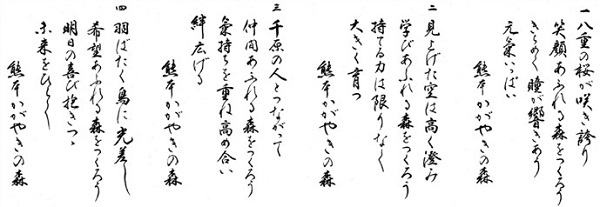 一 八重の桜が咲き誇り
笑顔あふれる森をつくろう
きらめく瞳が響きあう
元氣いっぱい
熊本かがやきの森
二 見上げた空は高く澄み
学びあふれる森をつくろう
持てる力は限りなく
大きく育つ
熊本かがやきの森
三 千原の人とつながって
仲間あふれる森をつくろう
氣持ちを重ね高め合い
絆広げる
熊本かがやきの森
四 羽ばたく鳥に光差し
希望あふれる森をつくろう
明日の喜び抱きつゝ
未来をひらく
熊本かがやきの森